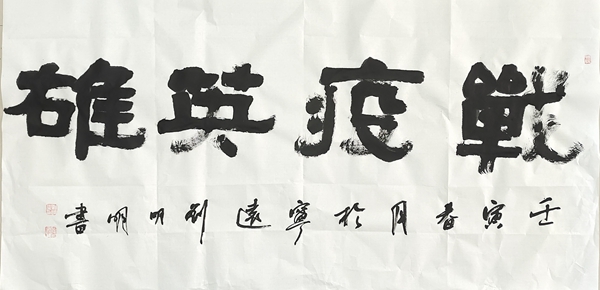 戰疫英雄
壬寅春月於寧遠劉明明書